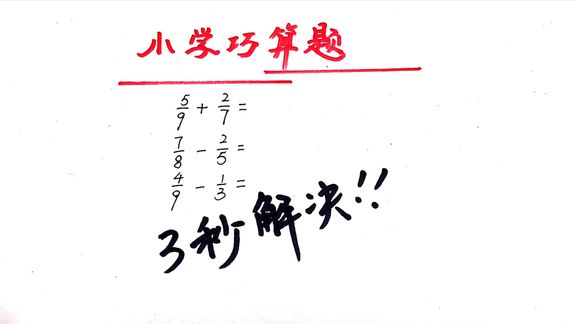 小学巧算题
5/9 + 2/7 =
7/8 - 2/5 =
4/9 - 1/3 =
3秒解决!!